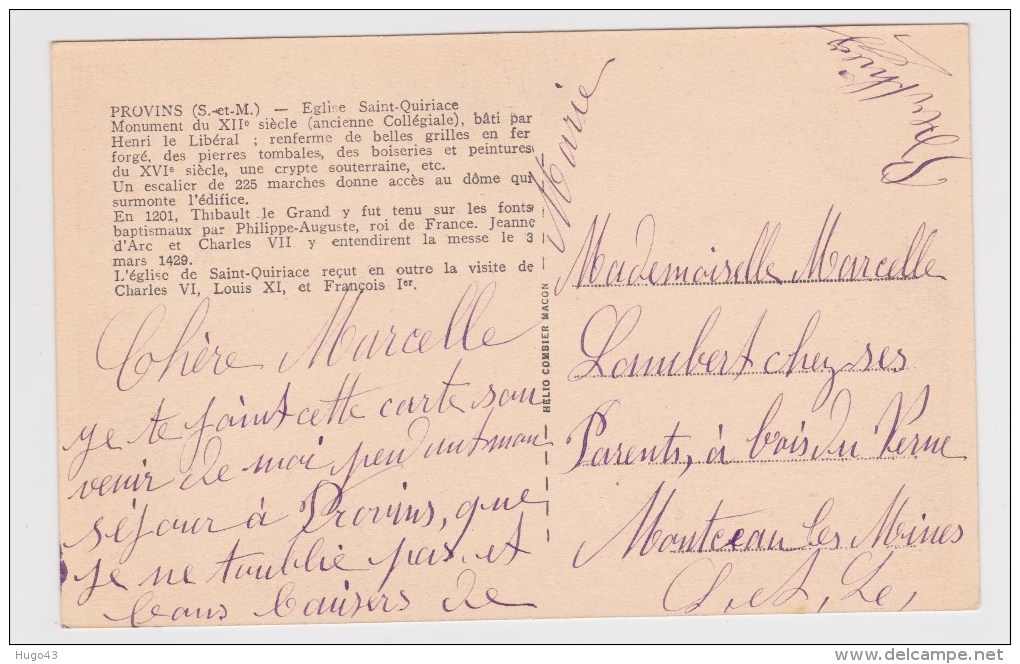 PROVINS (S.-et-M.) — Eglise Saint-Quiriace
Monument du XIIe siècle (ancienne Collégiale), bâti par
Henri le Libéral ; renferme de belles grilles en fer
forgé, des pierres tombales, des boiseries et peintures
du XVIe siècle, une crypte souterraine, etc.
Un escalier de 225 marches donne accès au dôme qui
surmonte l'édifice.
En 1201, Thibault le Grand y fut tenu sur les fonts
baptismaux par Philippe-Auguste, roi de France. Jeanne
d'Arc et Charles VII y entendirent la messe le 3
mars 1429.
L'église de Saint-Quiriace reçut en outre la visite de
Charles VI, Louis XI, et François Ier.
Chère Marcelle
je te joint cette carte sou
venir de moi pendent mon
séjour à Provins, que
je ne t'oublie pas et
bons baisers de
Marie
HELIO COMBIER MACON
Mademoiselle Marcelle
Lambert chez ses
Parents, à bois du Verne
Montceau les Mines
S. et. Le,
Hugo43
www.delcampe.net